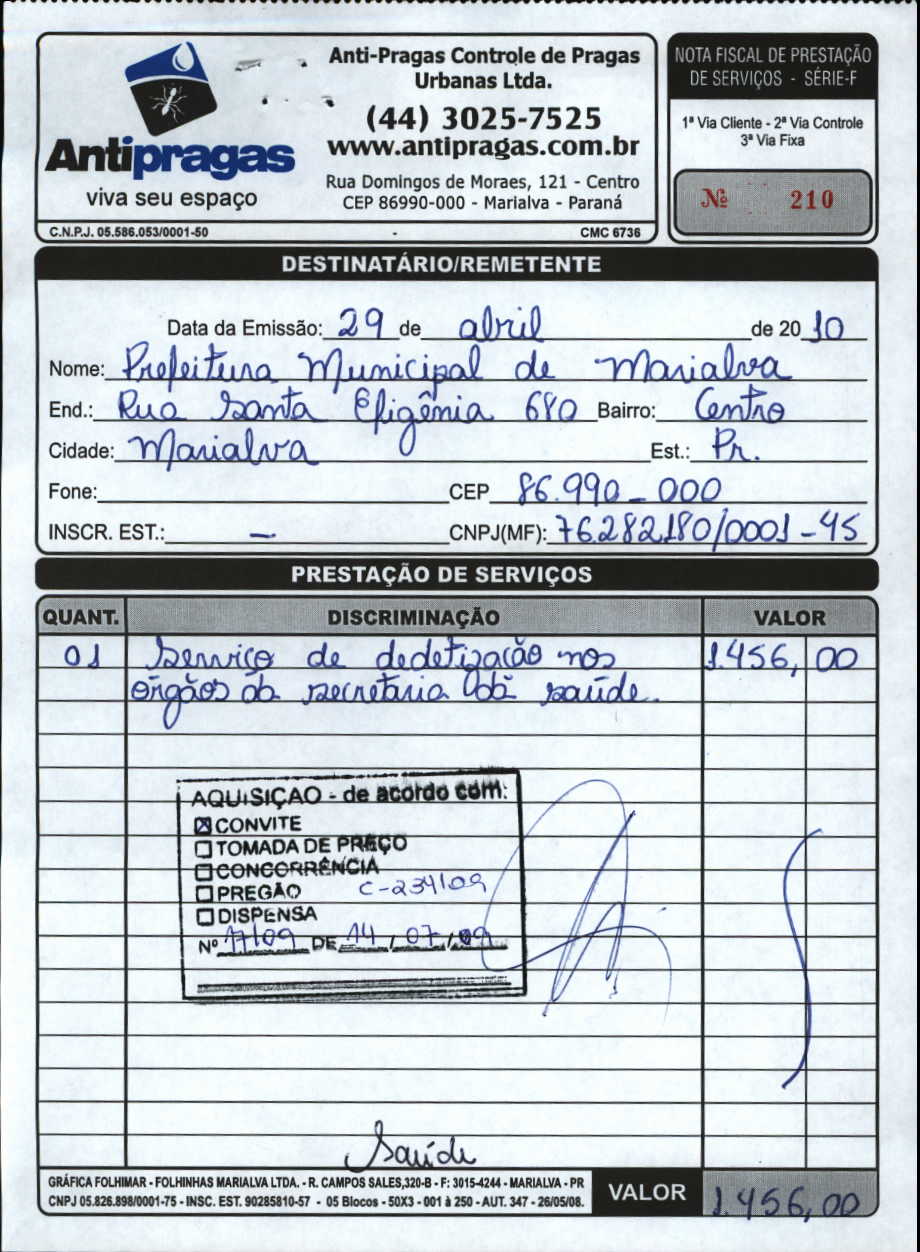 Anti-Pragas Controle de Pragas
Urbanas Ltda.
(44) 3025-7525
www.antipragas.com.br
Rua Domingos de Moraes, 121 - Centro
CEP 86990-000 - Marialva - Paraná
Antipragas
viva seu espaço
C.N.P.J. 05.586.053/0001-50 CMC 6736
NOTA FISCAL DE PRESTAÇÃO
DE SERVIÇOS - SÉRIE-F
1ª Via Cliente - 2ª Via Controle
3ª Via Fixa
Nº 210
DESTINATÁRIO/REMETENTE
Data da Emissão: 29 de abril de 20 10
Nome: Prefeitura Municipal de Marialva
End.: Rua Santa Efigênia 680 Bairro: Centro
Cidade: Marialva Est.: Pr.
Fone: CEP 86.990_000
INSCR. EST.: — CNPJ(MF): 76.282.180/0001-45
PRESTAÇÃO DE SERVIÇOS
QUANT. DISCRIMINAÇÃO VALOR
01 Serviço de dedetização nos 1.456,00
orgãos da secretaria da saúde.
AQUISIÇÃO - de acordo com:
☒ CONVITE
☐ TOMADA DE PREÇO
☐ CONCORRÊNCIA
☐ PREGÃO C-234/09
☐ DISPENSA
Nº 17/09 DE 14/07/09
Saúde
GRÁFICA FOLHIMAR - FOLHINHAS MARIALVA LTDA. - R. CAMPOS SALES,320-B - F: 3015-4244 - MARIALVA - PR
CNPJ 05.826.898/0001-75 - INSC. EST. 90285810-57 - 05 Blocos - 50X3 - 001 à 250 - AUT. 347 - 26/05/08.
VALOR 1.456,00